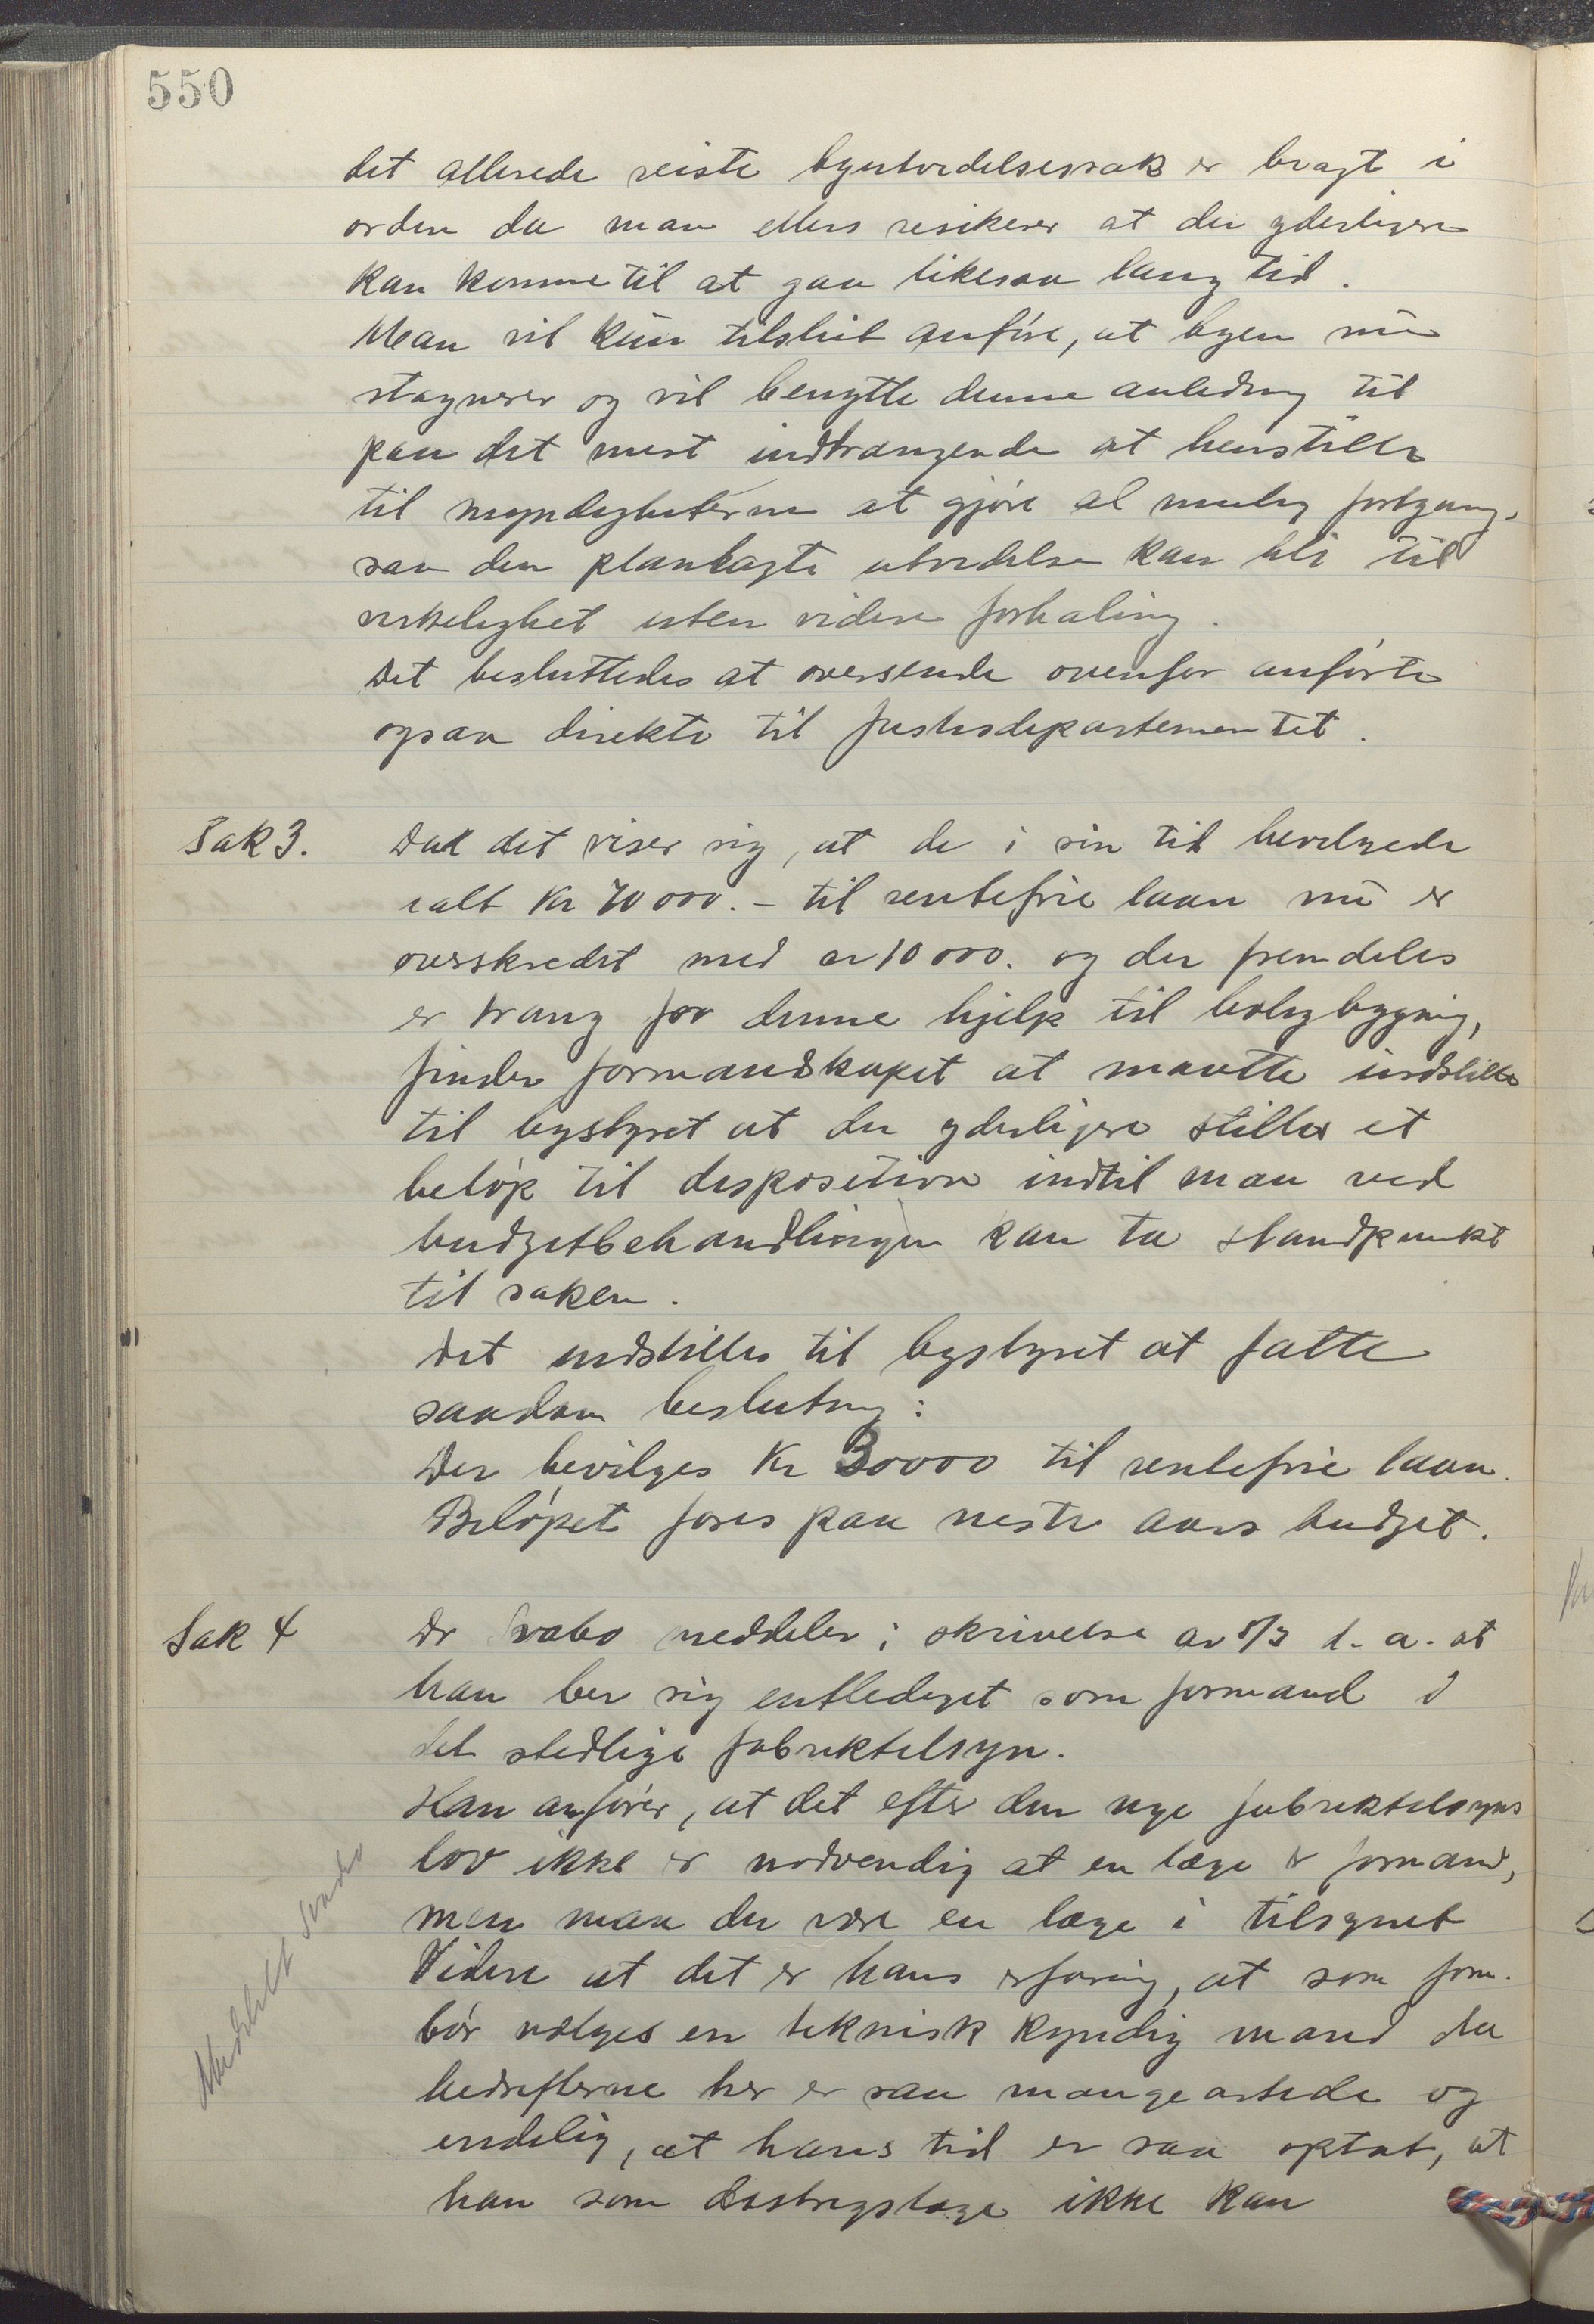 550
det allerede reiste byutvidelsessak er bragt i
orden da man ellers resikerer at der yderligere
kan komme til at gaa likesaa lang tid.
Man vil kun tilslut anføre, at byen nu
stagnerer og vil benytte denne anledning til
paa det mest indtrængende at henstille
til myndigheterne at gjøre al mulig fortgang,
saa den planlagte utvidelse kan bli til
virkelighet uten videre forhaling.
Det besluttedes at oversende ovenfor anførte
ogsaa direkte til Justisdepartementet.
Sak 3.
Da det viser sig, at de i sin tid bevilgede
ialt Kr 70000.- til rentefrie laan nu er
overskredet med ca 10000. og der fremdeles
er trang for denne hjelp til boligbygning,
finder formandskapet at maatte indstille
til bystyret at der yderligere stilles et
beløp til disposition indtil man ved
budgetbehandlingen kan ta standpunkt
til saken.
Det indstilles til bystyret at fatte
saadan beslutning:
Der bevilges Kr 30000 til rentefrie laan.
Beløpet føres paa neste aars budget.
Sak 4
Dr Svabo meddeler i skrivelse av 8/3 d. a. at
han ber sig entlediget som formand i
det stedlige fabriktilsyn.
Han anfører, at det efter den nye fabriktilsyns
lov ikke er nødvendig at en læge er formand,
men maa der være en læge i tilsynet
Videre at det er hans erfaring, at som form.
bør vælges en teknisk kyndig mand da
bedrifterne her er saa mangeartede og
endelig, at hans tid er saa optat, at
han som distriktslæge ikke kan
Meddelt Svabo